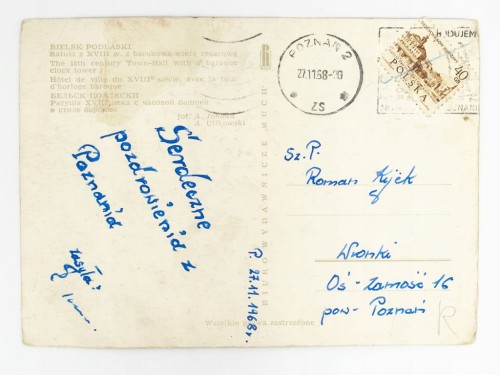 BIELSK PODLASKI
Ratusz z XVIII w. z barokową wieżą zegarową
The 18th century Town-Hall with a baroque
clock tower
Hôtel de ville du XVIIIe siècle, avec la tour
d'horloge baroque
БЕЛЬСК-ПОДЛЯСКИ
Ратуша XVIII века с часовой башней
в стиле барокко
fot.
BIURO WYDAWNICZE RUCH
Wszelkie prawa zastrzeżone
POZNAŃ 2
27.11.68
ZS
BUDUJEM
40
POLSKA
Serdeczne
pozdrowienia z
Poznania
zasyła:
P. 27.11.1968r.
Sz. P.
Roman
Wronki
Oś-Zamość 16
pow- Poznań
R